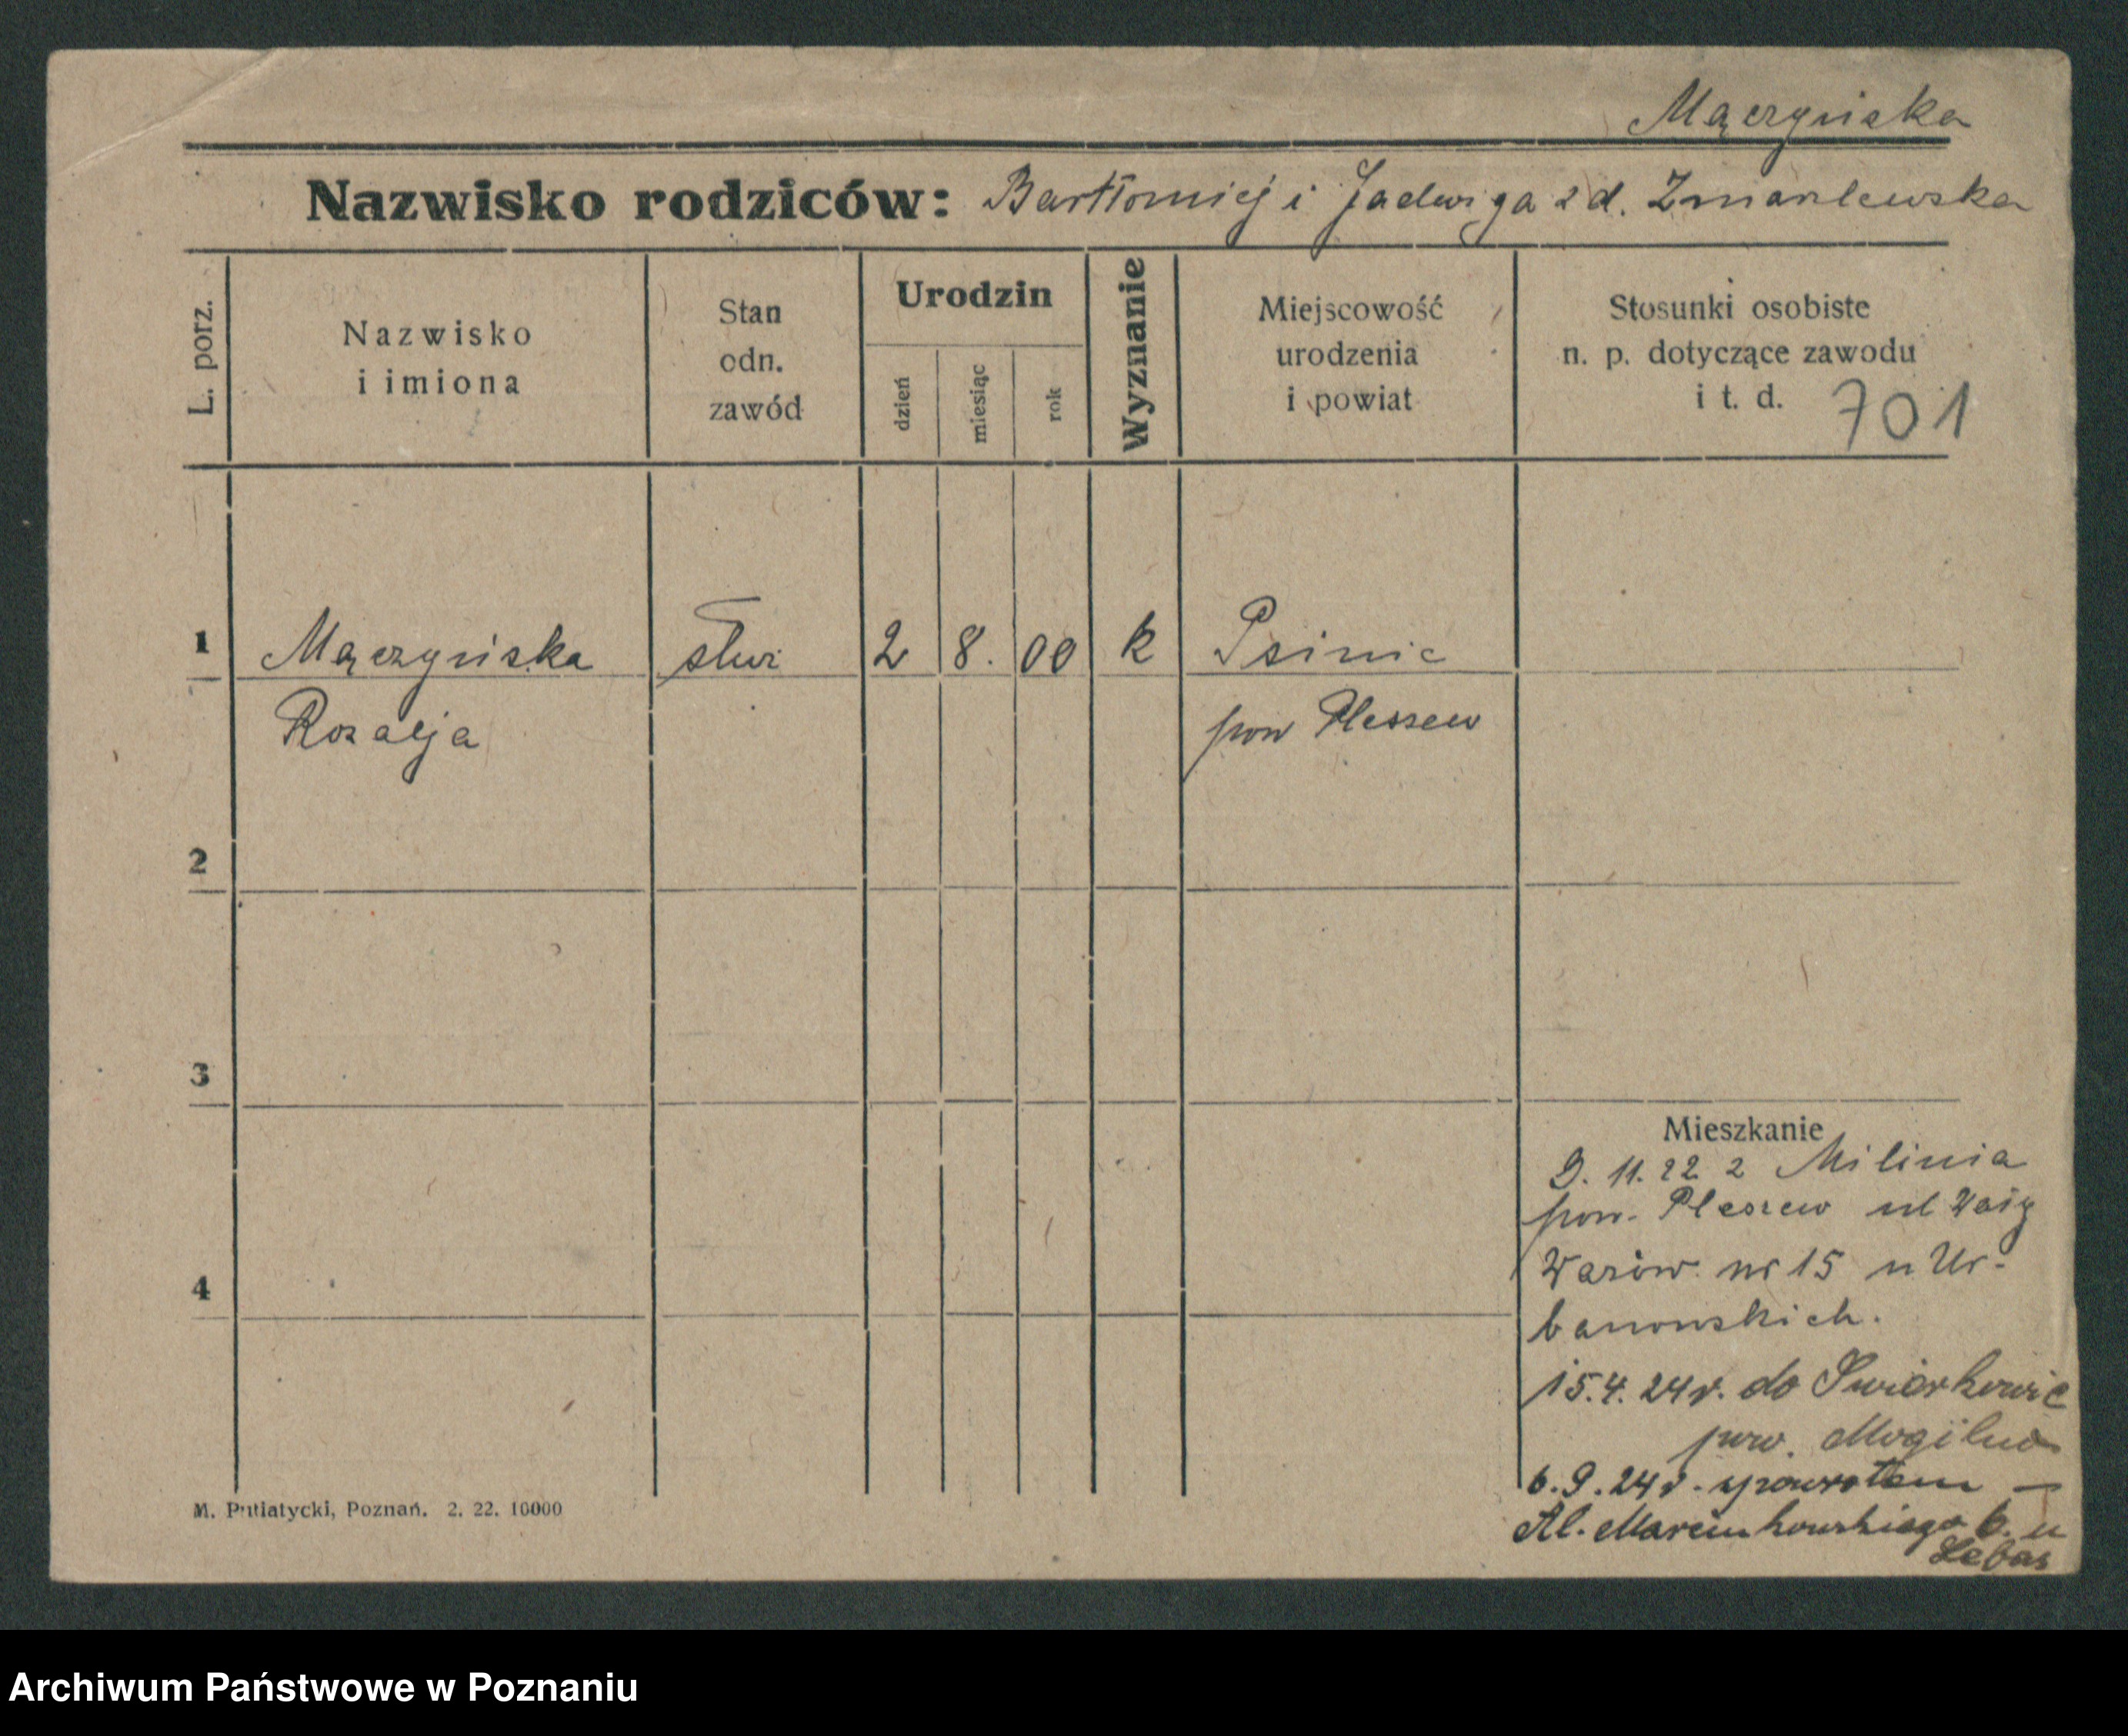 Mączyńska
Nazwisko rodziców: Bartłomiej i Jadwiga z d.
L. porz.
Nazwisko
i imiona
Stan
odn.
zawód
Urodzin
dzień
miesiąc
rok
Wyznanie
Miejscowość
urodzenia
i powiat
Stosunki osobiste
n. p. dotyczące zawodu
i t. d.
701
1 Mączyńska 2 8. 00 k Psinie
Rozalja pow Pleszew
2
3
4
Mieszkanie
9. 11. 22 z Milinia
pow. Pleszew ul
nr 15 u Ur-
banowskich.
15.4.24r. do
pow. Mogilno
6.9.24r. spowrotem —
Al. Marcinkowskiego 6. u
M. Putiatycki, Poznań. 2. 22. 10000
Archiwum Państwowe w Poznaniu